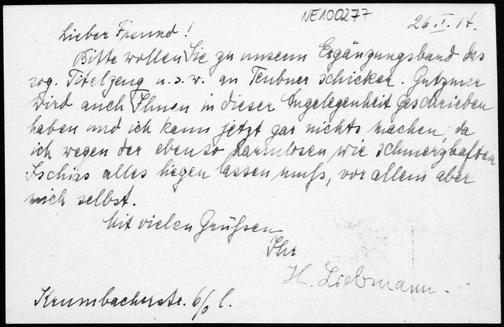 NE100277
26. I. 14.
Lieber Freund!
Bitte wollen Sie zu unserm Ergänzungsband das
sog. Titelzeug u. s. w. an Teubner schicken. Gutzmer
wird auch Ihnen in dieser Angelegenheit geschrieben
haben und ich kann jetzt gar nichts machen, da
ich wegen der ebenso harmlosen wie schmerzhaften
Ischias alles liegen lassen muß, vor allem aber
mich selbst.
Mit vielen Grüßen
Ihr
H. Liebmann.
Krumbacherstr. 6/0 l.